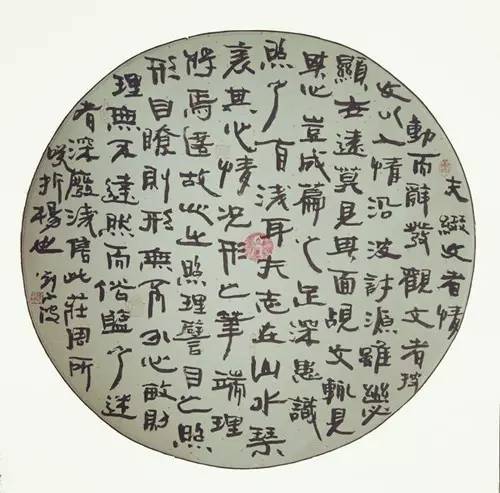 夫綴文者情
動而辭發觀文者披
文以入情沿波討源雖幽必
顯世遠莫見其面覘文輒見
其心豈成篇之足深患識
照之自淺耳夫志在山水琴
表其心情况形之筆端理
將焉匿故心之照理譬目之照
形目瞭則形無不分心敏則
理無不達然而俗監之迷
者深廢淺售此莊周所
咲折楊也